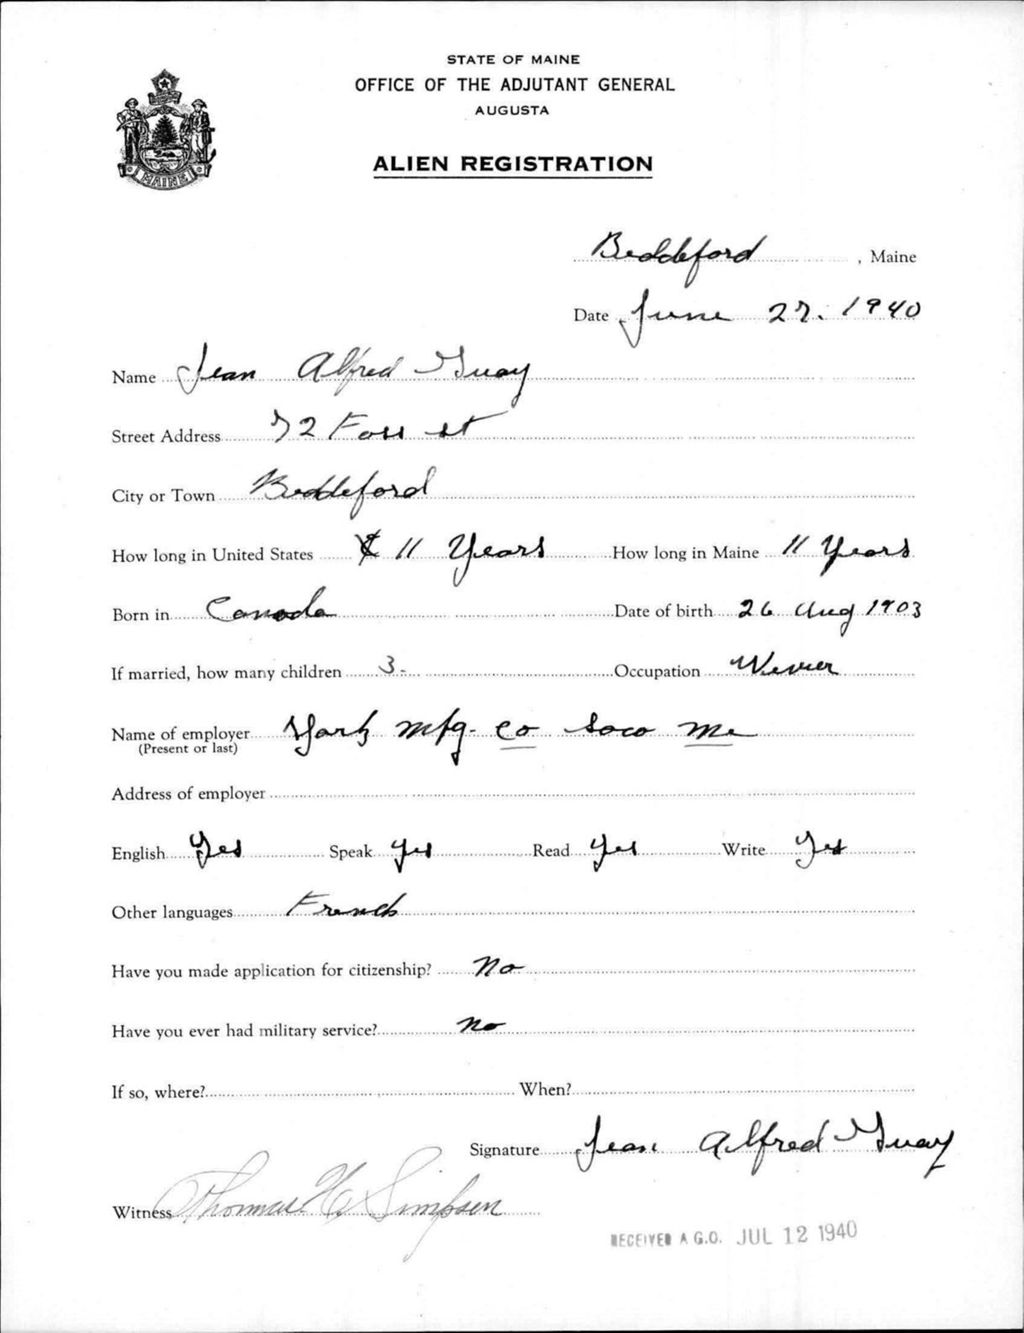 STATE OF MAINE
OFFICE OF THE ADJUTANT GENERAL
AUGUSTA
ALIEN REGISTRATION
MAINE
Biddeford, Maine
Date June 27. 1940
Name Jean Alfred Guay
Street Address 72 Foss st
City or Town Biddeford
How long in United States 11 Years How long in Maine 11 Years
Born in Canada Date of birth 26 Aug 1903
If married, how many children 3- Occupation Wever
Name of employer York Mfg. Co Saco Me
(Present or last)
Address of employer
English Yes Speak Yes Read Yes Write Yes
Other languages French
Have you made application for citizenship? No
Have you ever had military service? No
If so, where? When?
Signature Jean Alfred Guay
Witness Thomas H Simpson
RECEIVED A.G.O. JUL 12 1940